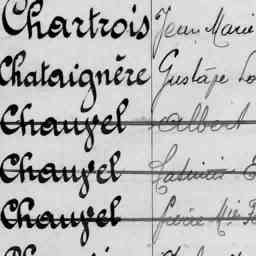 Chartrois Jean Marie
Chataignère Gustave
Chauvel Albert
Chauvel
Chauvel Pierre Mie